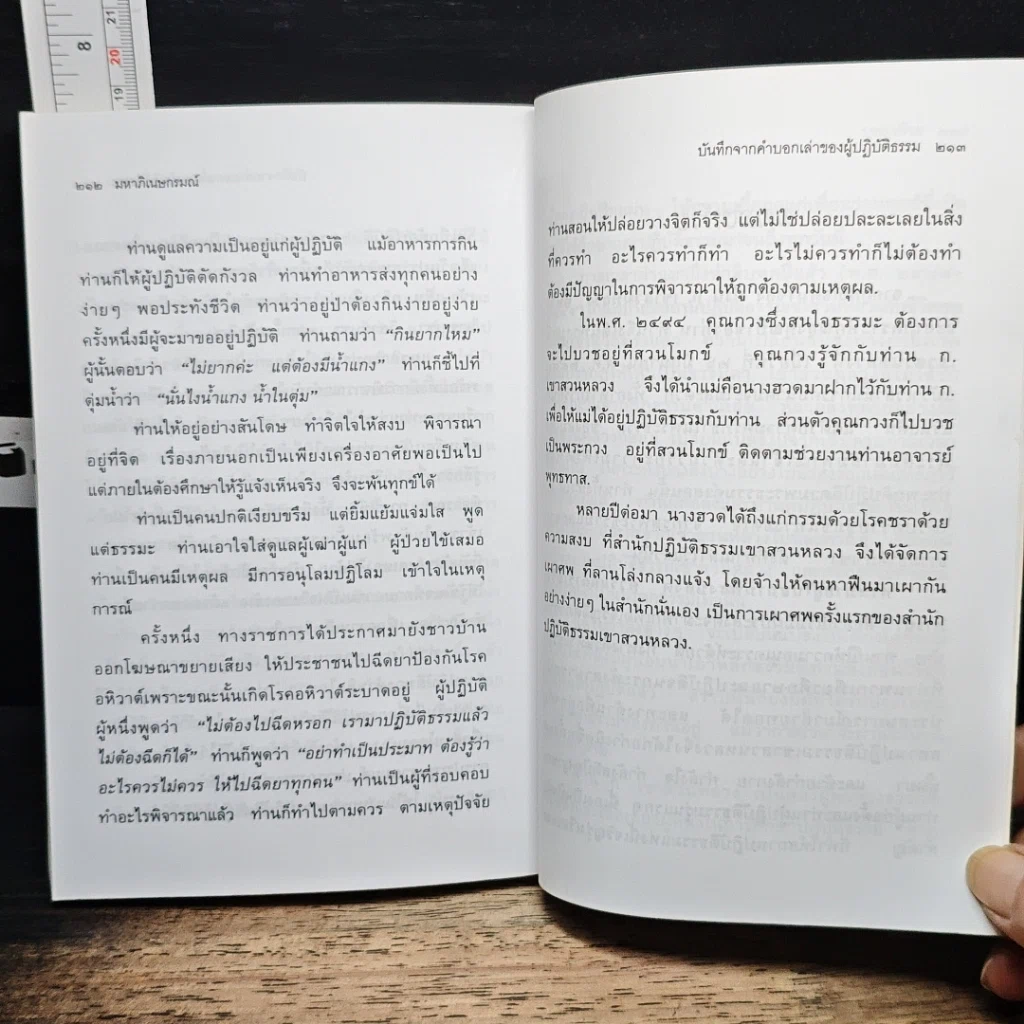 8
21
20
19
๒๑๒ มหาภิเนษกรมณ์
ท่านดูแลความเป็นอยู่แก่ผู้ปฏิบัติ แม้อาหารการกิน
ท่านก็ให้ผู้ปฏิบัติตัดกังวล ท่านทำอาหารส่งทุกคนอย่าง
ง่ายๆ พอประทังชีวิต ท่านว่าอยู่ป่าต้องกินง่ายอยู่ง่าย
ครั้งหนึ่งมีผู้จะมาขออยู่ปฏิบัติ ท่านถามว่า “กินยากไหม”
ผู้นั้นตอบว่า “ไม่ยากค่ะ แต่ต้องมีน้ำแกง” ท่านก็ชี้ไปที่
ตุ่มน้ำว่า “นั่นไงน้ำแกง น้ำในตุ่ม”
ท่านให้อยู่อย่างสันโดษ ทำจิตใจให้สงบ พิจารณา
อยู่ที่จิต เรื่องภายนอกเป็นเพียงเครื่องอาศัยพอเป็นไป
แต่ภายในต้องศึกษาให้รู้แจ้งเห็นจริง จึงจะพ้นทุกข์ได้
ท่านเป็นคนปกติเงียบขรึม แต่ยิ้มแย้มแจ่มใส พูด
แต่ธรรมะ ท่านเอาใจใส่ดูแลผู้เฒ่าผู้แก่ ผู้ป่วยไข้เสมอ
ท่านเป็นคนมีเหตุผล มีการอนุโลมปฏิโลม เข้าใจในเหตุ
การณ์
ครั้งหนึ่ง ทางราชการได้ประกาศมายังชาวบ้าน
ออกโฆษณาขยายเสียง ให้ประชาชนไปฉีดยาป้องกันโรค
อหิวาต์เพราะขณะนั้นเกิดโรคอหิวาต์ระบาดอยู่ ผู้ปฏิบัติ
ผู้หนึ่งพูดว่า “ไม่ต้องไปฉีดหรอก เรามาปฏิบัติธรรมแล้ว
ไม่ต้องฉีดก็ได้” ท่านก็พูดว่า “อย่าทำเป็นประมาท ต้องรู้ว่า
อะไรควรไม่ควร ให้ไปฉีดยาทุกคน” ท่านเป็นผู้ที่รอบคอบ
ทำอะไรพิจารณาแล้ว ท่านก็ทำไปตามควร ตามเหตุปัจจัย
บันทึกจากคำบอกเล่าของผู้ปฏิบัติธรรม ๒๑๓
ท่านสอนให้ปล่อยวางจิตก็จริง แต่ไม่ใช่ปล่อยปละละเลยในสิ่ง
ที่ควรทำ อะไรควรทำก็ทำ อะไรไม่ควรทำก็ไม่ต้องทำ
ต้องมีปัญญาในการพิจารณาให้ถูกต้องตามเหตุผล.
ในพ.ศ. ๒๔๙๔ คุณกวงซึ่งสนใจธรรมะ ต้องการ
จะไปบวชอยู่ที่สวนโมกข์ คุณกวงรู้จักกับท่าน ก.
เขาสวนหลวง จึงได้นำแม่คือนางฮวดมาฝากไว้กับท่าน ก.
เพื่อให้แม่ได้อยู่ปฏิบัติธรรมกับท่าน ส่วนตัวคุณกวงก็ไปบวช
เป็นพระกวง อยู่ที่สวนโมกข์ ติดตามช่วยงานท่านอาจารย์
พุทธทาส.
หลายปีต่อมา นางฮวดได้ถึงแก่กรรมด้วยโรคชราด้วย
ความสงบ ที่สำนักปฏิบัติธรรมเขาสวนหลวง จึงได้จัดการ
เผาศพ ที่ลานโล่งกลางแจ้ง โดยจ้างให้คนหาฟืนมาเผากัน
อย่างง่ายๆ ในสำนักนั่นเอง เป็นการเผาศพครั้งแรกของสำนัก
ปฏิบัติธรรมเขาสวนหลวง.